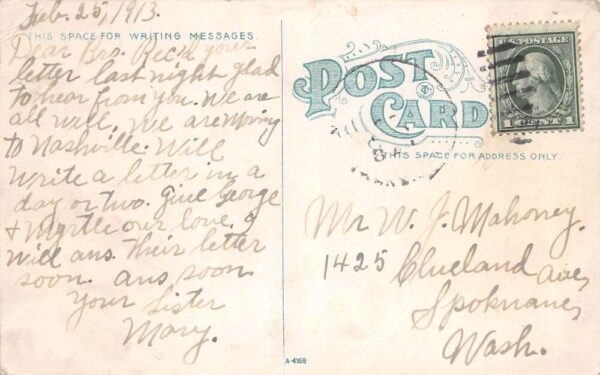 Feb. 25, 1913.
THIS SPACE FOR WRITING MESSAGES
Dear Bro. Rec'd your
letter last night glad
to hear from you. We are
all well, We are moving
to Nashville. Will
write a letter in a
day or two. Give George
& Myrtle our love, &
will ans. their letter
soon. ans soon.
Your Sister
Mary.
POST CARD
THIS SPACE FOR ADDRESS ONLY
U.S. POSTAGE
1 CENT 1
Mr W. J. Mahoney.
1425 Cleveland Ave,
Spoknane,
Wash.
A-4166